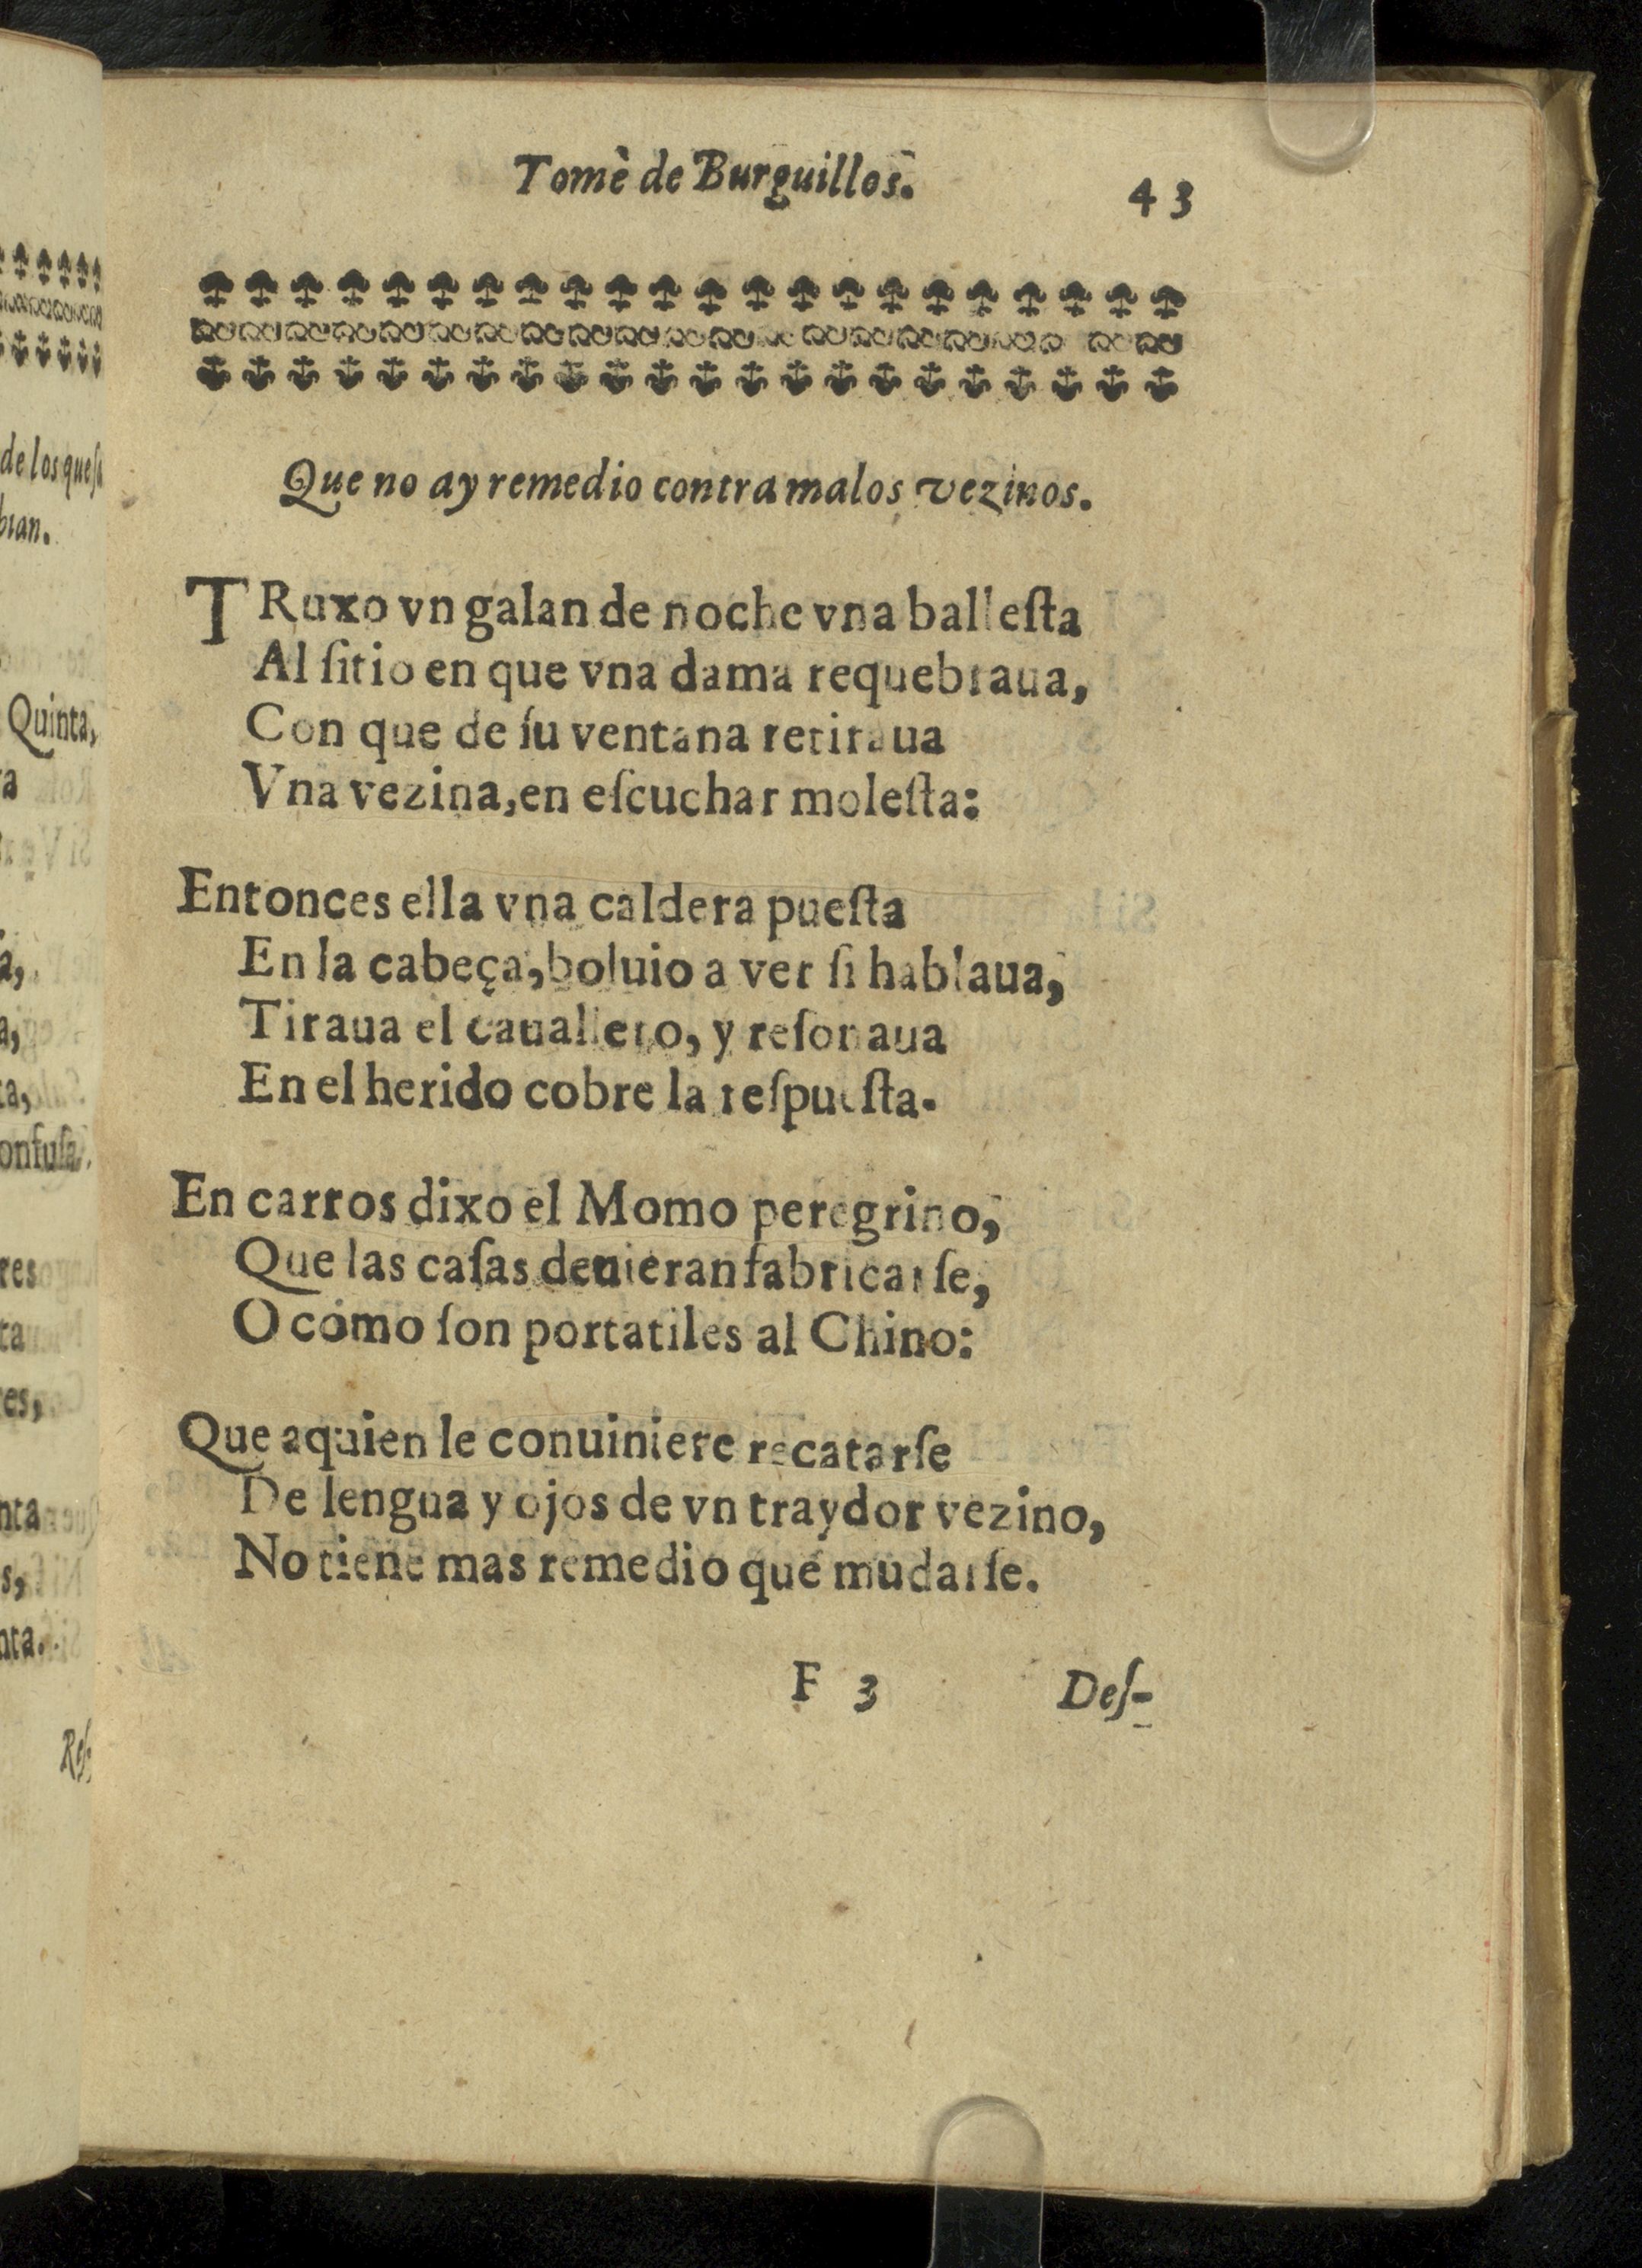 Tomè de Burguillos. 43
Que no ay remedio contra malos vezinos.
TRuxo vn galan de noche vna balleſta
Al ſitio en que vna dama requebraua,
Con que de ſu ventana retiraua
Vna vezina, en eſcuchar moleſta:
Entonces ella vna caldera pueſta
En la cabeça, boluio a ver ſi hablaua,
Tiraua el cauallero, y reſonaua
En el herido cobre la reſpueſta.
En carros dixo el Momo peregrino,
Que las caſas deuieran fabricarſe,
O como ſon portatiles al Chino:
Que aquien le conuiniere recatarſe
De lengua y ojos de vn traydor vezino,
No tiene mas remedio que mudarſe.
F 3 Deſ-
de los queſ
bian.
Quinta,
a
a,
a,
ta,
onfuſa.
res
ta
res,
nta
s,
nta.
Reſ-